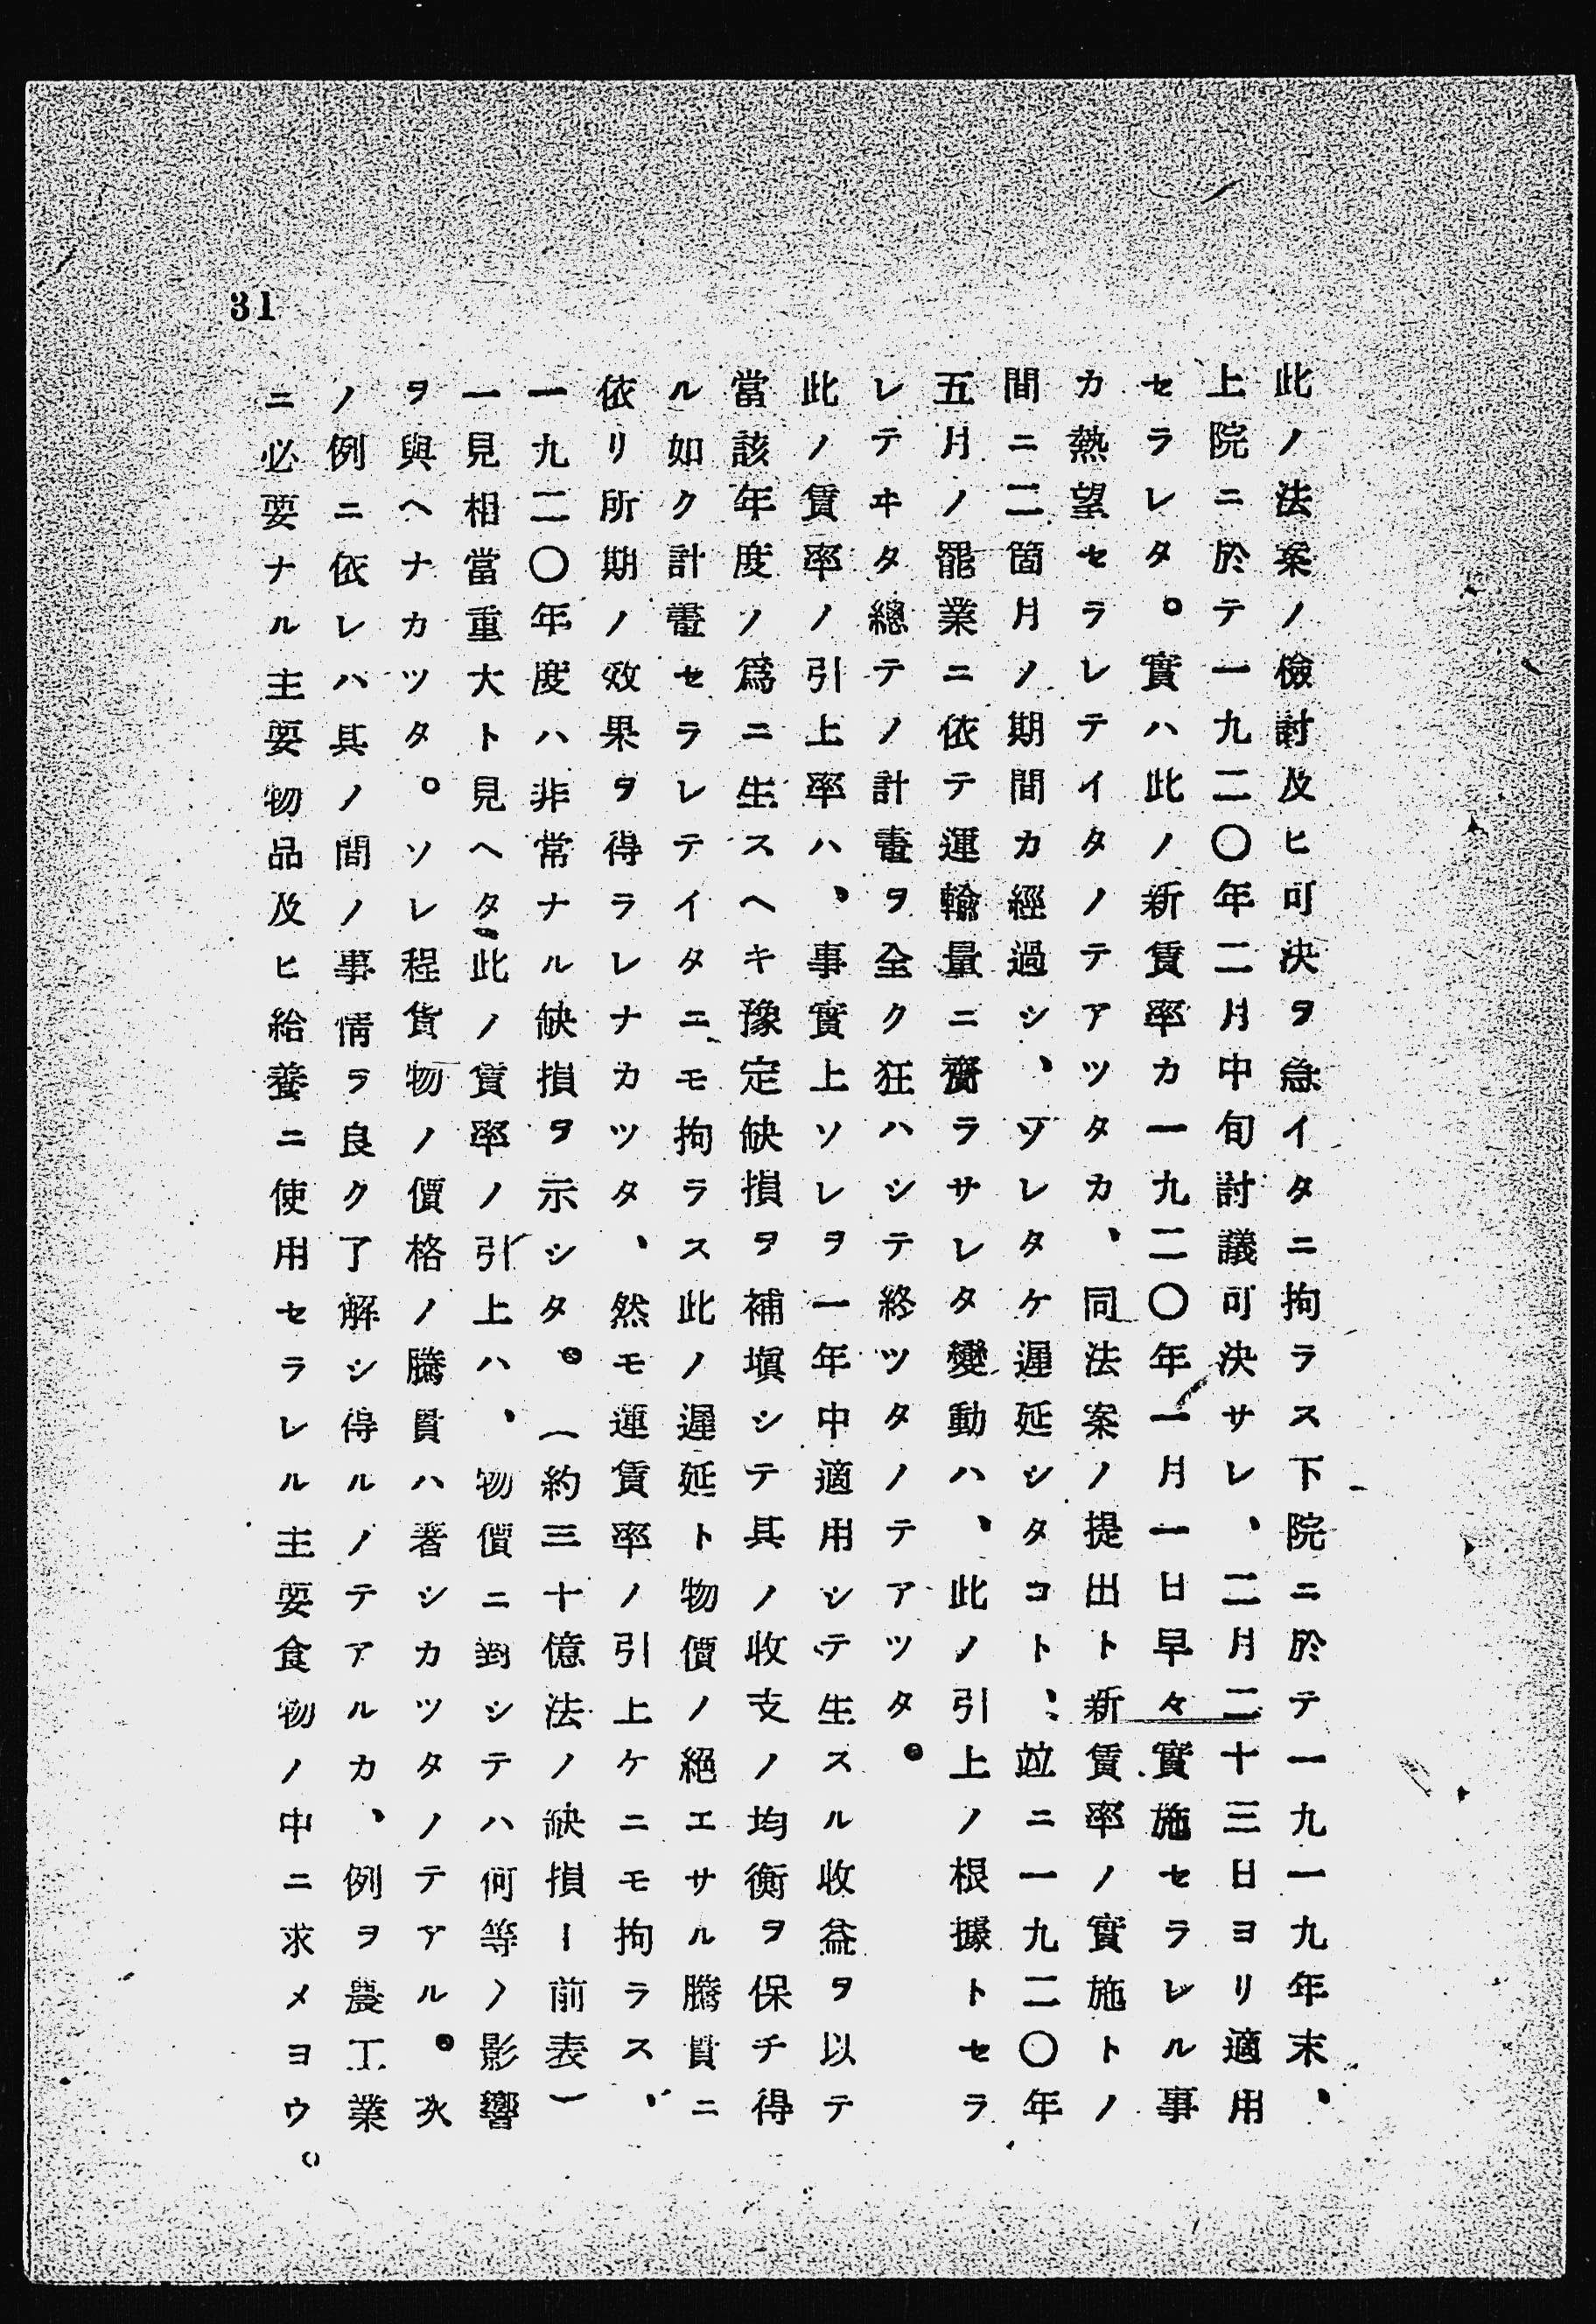 此ノ法案ノ檢討及ヒ可決ヲ急イタニ拘ラス下院ニ於テ一九一九年末、
上院ニ於テ一九二〇年二月中旬討議可決サレ、二月二十三日ヨリ適用
セラレタ。實ハ此ノ新賃率カ一九二〇年一月一日早々實施セラレル事
カ熱望セラレテイタノテアツタカ、同法案ノ提出ト新賃率ノ實施トノ
間ニ二箇月ノ期間カ經過シ、ソレタケ遲延シタコト、竝ニ一九二〇年
五月ノ罷業ニ依テ運輸量ニ齎ラサレタ變動ハ、此ノ引上ノ根據トセラ
レテヰタ總テノ計畫ヲ全ク狂ハシテ終ツタノテアツタ。
此ノ賃率ノ引上率ハ、事實上ソレヲ一年中適用シテ生スル收益ヲ以テ
當該年度ノ爲ニ生スヘキ豫定缺損ヲ補塡シテ其ノ收支ノ均衡ヲ保チ得
ル如ク計畫セラレテイタニモ拘ラス此ノ遲延ト物價ノ絕エサル騰貴ニ
依リ所期ノ效果ヲ得ラレナカツタ、然モ運賃率ノ引上ケニモ拘ラス、
一九二〇年度ハ非常ナル缺損ヲ示シタ。(約三十億法ノ缺損ー前表)
一見相當重大ト見ヘタ此ノ賃率ノ引上ハ、物價ニ對シテハ何等ノ影響
ヲ與ヘナカツタ。ソレ程貨物ノ價格ノ騰貴ハ著シカツタノテアル。次
ノ例ニ依レハ其ノ間ノ事情ラ良ク了解シ得ルノテアルカ、例ヲ農工業
ニ必要ナル主要物品及ヒ給養ニ使用セラレル主要食物ノ中ニ求メヨウ。
31